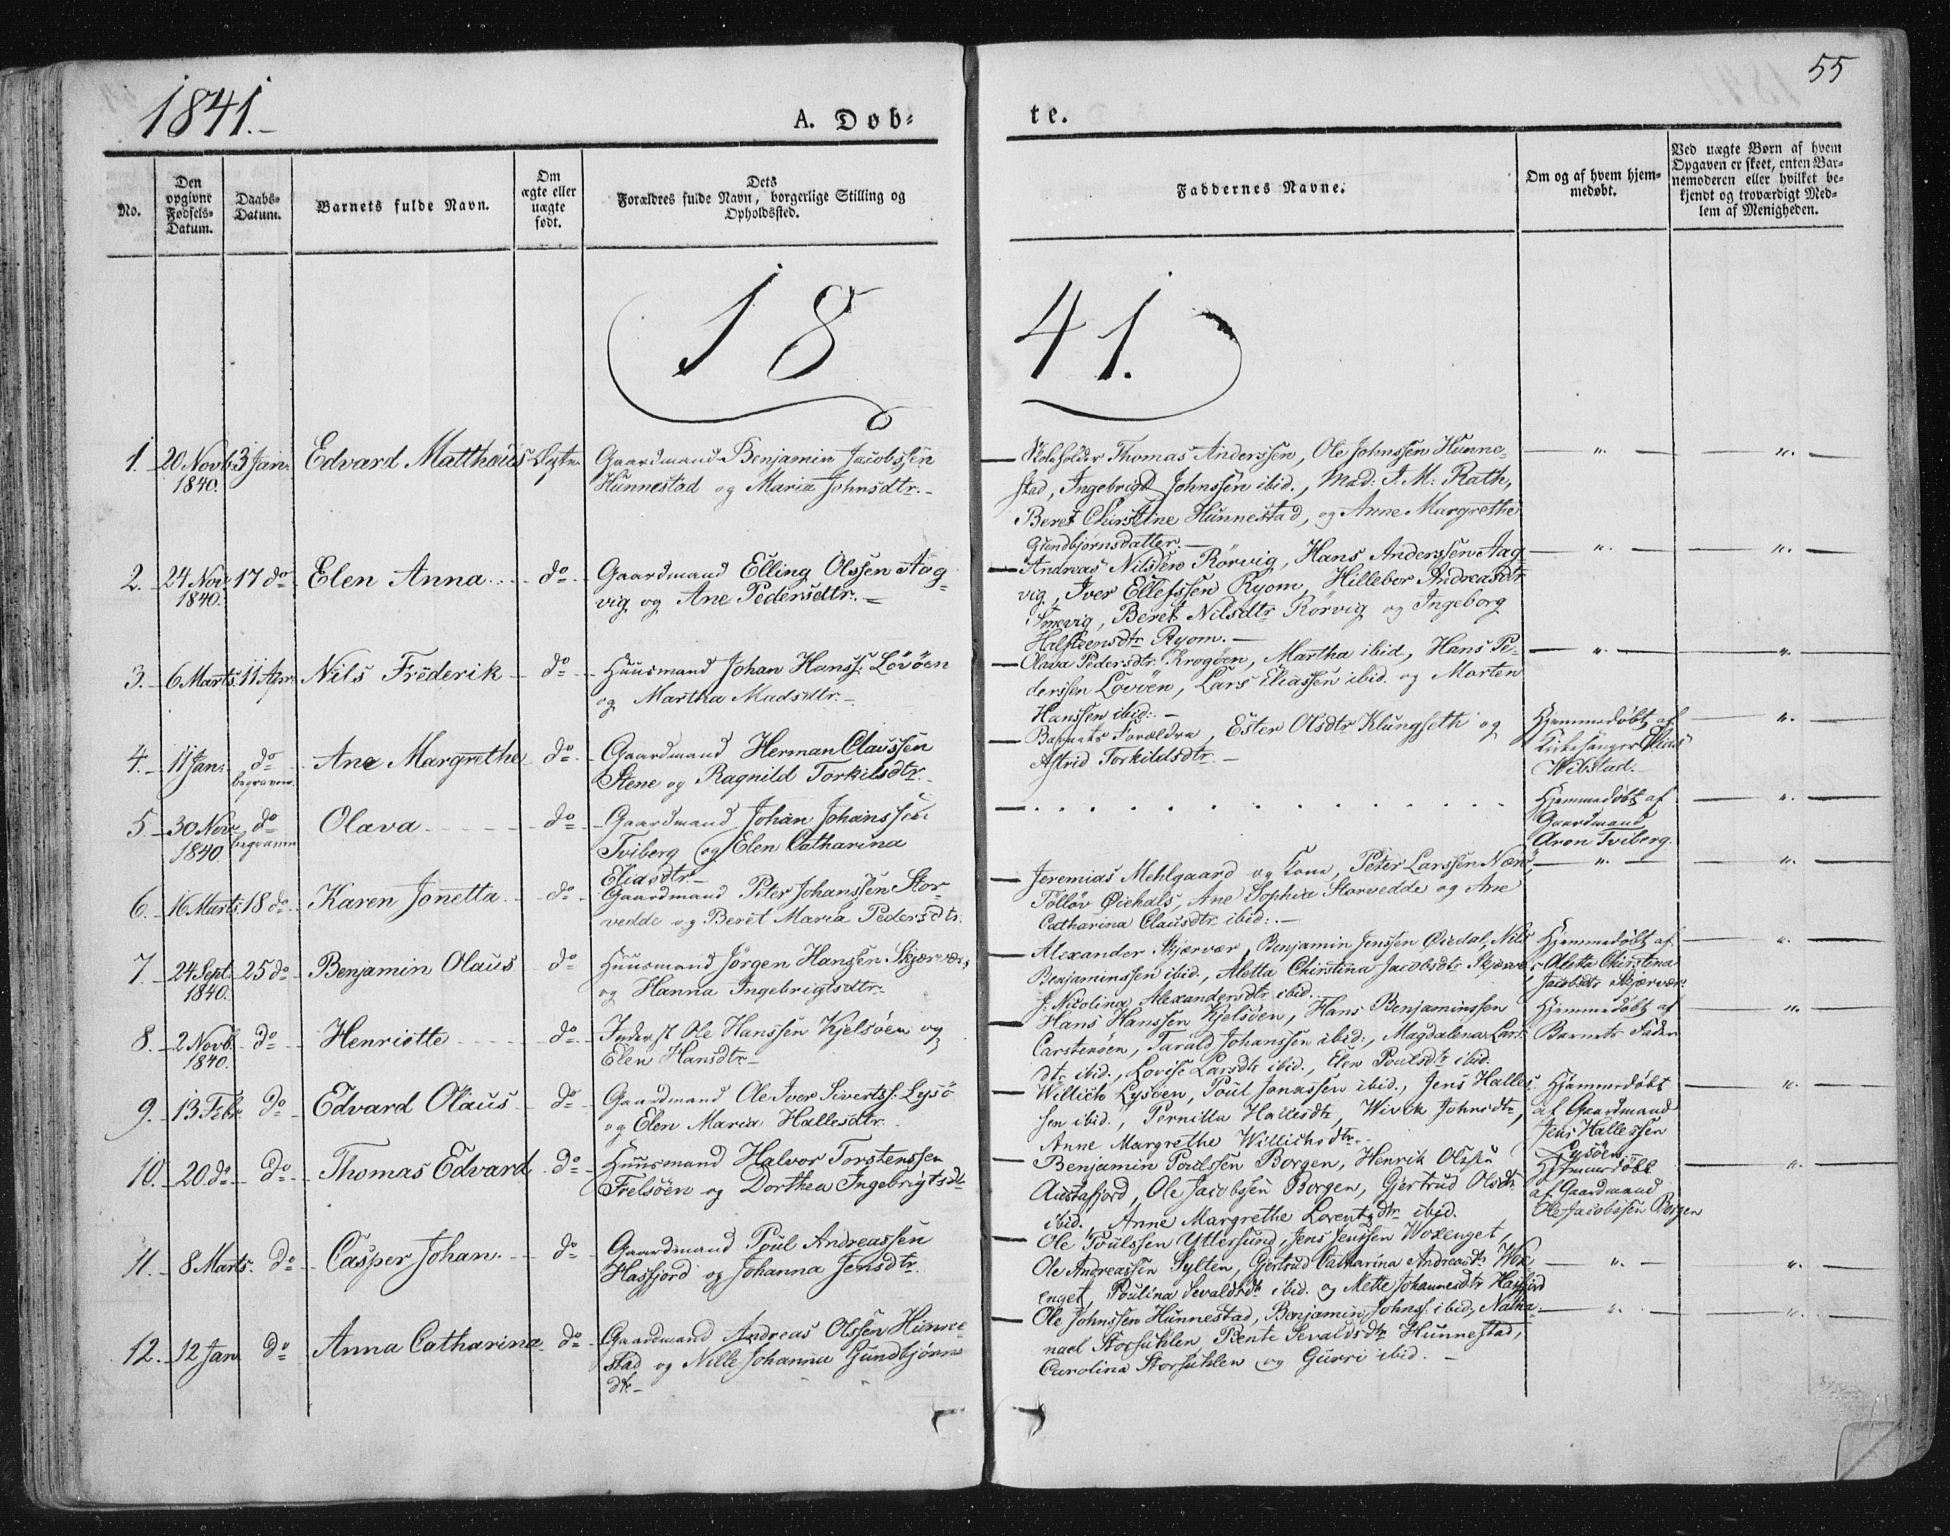 1841.
A. Døb-
te.
55
No.
Den opgivne Fødsels-Datum.
Daabs-Datum.
Barnets fulde Navn.
Om ægte eller uægte født.
Dets Forældres fulde Navn, borgerlige Stilling og Opholdssted.
Faddernes Navne.
Om og af hvem hjemmedøbt.
Ved uægte Børn af hvem Opgaven er skeet, enten Barnemoderen eller hvilket bekjendt og troværdigt Medlem af Menigheden.
18
41.
1. 20 Novb. 1840. 3 Jan. Edvard Matthæus Ægte
Gaardmand Benjamin Jacobssen
Hunnestad og Maria Johnsdtr.
Thomas Anderssen, Ole Johnssen Hunne-
stad, Ingebrigt Johnssen ibid., Mad: J. M: Rath,
Beret Christine Hunnestad, og Anne Margrethe
Gundbjørnsdatter.
2. 24 Nov. 1840. 17 do Elen Anna do
Gaardmand Elling Olssen Aag-
vig og Ane Pedersdtr.
Andreas Nilssen Rørvig, Hans Anderssen Aag
vig, Iver Ellefssen Ryom, Hillebor Andreasdtr
Smevig, Beret Nilsdtr Rørvig og Ingeborg
Halsteensdtr Ryom.
3. 6 Marts. 11 Apr. Nils Frederik do
Huusmand Johan Hanss: Løvøen
og Martha Madsdtr.
Olava Pedersdtr. Krogøen, Martha ibid, Hans Pe-
derssen Løvøen, Lars Eliassen ibid. og Morten
Hanssen ibid:
4. 11 Jan. do begraven Ane Margrethe do
Gaardmand Herman Claussen
Stene og Ragnild Torkilsdtr.
Barnets Forældre, Ester Olsdtr Klungseth og
Astrid Torkildsdtr.
Hjemmedøbt af
Kirkesanger Elias
Wibstad.
5 30 Nov. 1840 do begraven Olava do
Gaardmand Johan Johanssen
Tviberg og Elen Catharina
Eliasdtr.
Hjemmedøbt af
Gaardmand
Aron Tviberg.
6. 16 Marts. 18 do Karen Jonetta do
Gaardmand Peter Johanssen Stor
vedde og Beret Maria Pedersdtr.
Jeremias Mehlgaard og Kone, Peter Larssen Nærö,
Tølløv Øiehals, Ane Sophia Storvedde og Ane
Catharina Clausdtr ibid:
7. 24 Sept. 1840. 25 do Benjamin Olaus do
Huusmand Jörgen Hanssen Skjærvær,
og Hanna Ingebrigtsdtr.
Alexander Skjærvær, Benjamin Jenssen Øiedal, Nils
Benjaminssen ibid, Aletta Christina Jacobsdtr Skjærvær
J. Nicolina Alexandersdtr ibid.
Hjemmedøbt af
Aletta Christina
Jacobsdtr Skjærvær.
8. 2 Novb. 1840. do Henriette do
Inderst Ole Hanssen Kjelsøen og
Elen Hansdtr.
Hans Hanssen Kjelsøen, Hans Benjaminssen
Carstenøen, Tarald Johanssen ibid:, Magdalena Lars-
dtr ibid., Lovise Larsdtr ibid., Elen Poulsdtr ibid.
Hjemmedøbt af
Barnets Fader
9. 13 Febr. do Edvard Olaus do
Gaardmand Ole Iver Sivertss: Lysö
og Elen Maria Hallesdtr.
Willich Lysøen, Poul Jonassen ibid., Jens Halles-
sen ibid., Pernilla Hallesdtr, Wivik Johnsdtr,
Anne Margrethe Willichsdtr.
Hjemmedøbt
af Gaardmand
Jens Hallessen
Lysøen
10. 20. do do Thomas Edvard do
Huusmand Halvor Torstenssen
Frelsøen og Dorthea Ingebrigtsdtr
Benjamin Poulssen Borgen, Henrik Olssen
Austafjord, Ole Jacobssen Borgen, Gjertrud Olsdtr
ibid. Anne Margrethe Lorentzdtr ibid.
Hjemmedøbt
af Gaardmand
Ole Jacobssen Borgen
11. 8 Marts. do Casper Johan do
Gaardmand Poul Andreassen
Hasfjord og Johanna Jensdtr.
Ole Poulssen Yttersund, Jens Jenssen Woxenget,
Ole Andreassen Sylten, Gjertrud Catharina Andreasdtr Wox-
enget, Poulina Sevaldsdtr ibid. og Mette Johannesdtr Hasfjord
12. 12 Jan do Anna Catharina do
Gaardmand Andreas Olssen Hunne-
stad og Nille Johanna Gundbjørns
dtr
Ole Johnssen Hunnestad, Benjamin Johnss. ibid, Natha-
nael Storsuhlen, Bente Sevaldsdtr Hunnestad,
Carolina Storsuhlen og Gurri ibid.